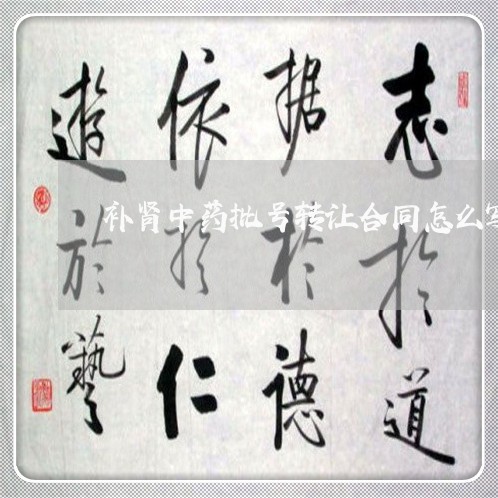 志於道
据於德
依於仁
遊於藝
补肾中药批号转让合同怎么写